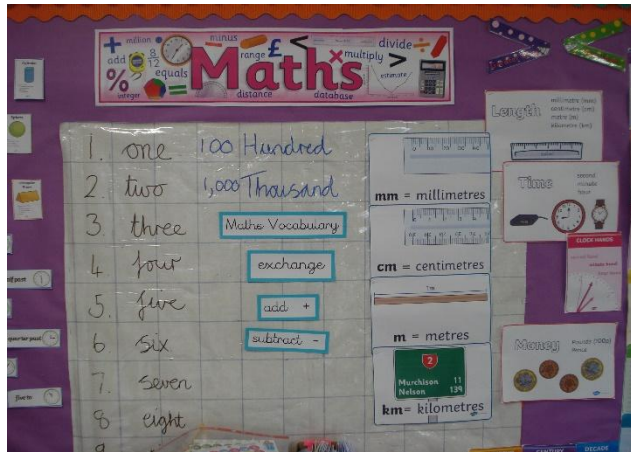 + million minus divide ÷
add 8/12 range £ < multiply >
% equals Maths × estimate
integer distance database
1. one 100 Hundred
2. two 1,000 Thousand
3. three Maths Vocabulary
4 four exchange
5. five add +
6 six subtract -
7. seven
8 eight
9
mm = millimetres
cm = centimetres
1m
m = metres
2
Murchison 11
Nelson 139
km= kilometres
Length
millimetre (mm)
centimetre (cm)
metre (m)
kilometre (km)
Time
second
minute
hour
CLOCK HANDS
Money
Pounds (100p)
Pence
half past
quarter past
five to
CENTURY DECADE